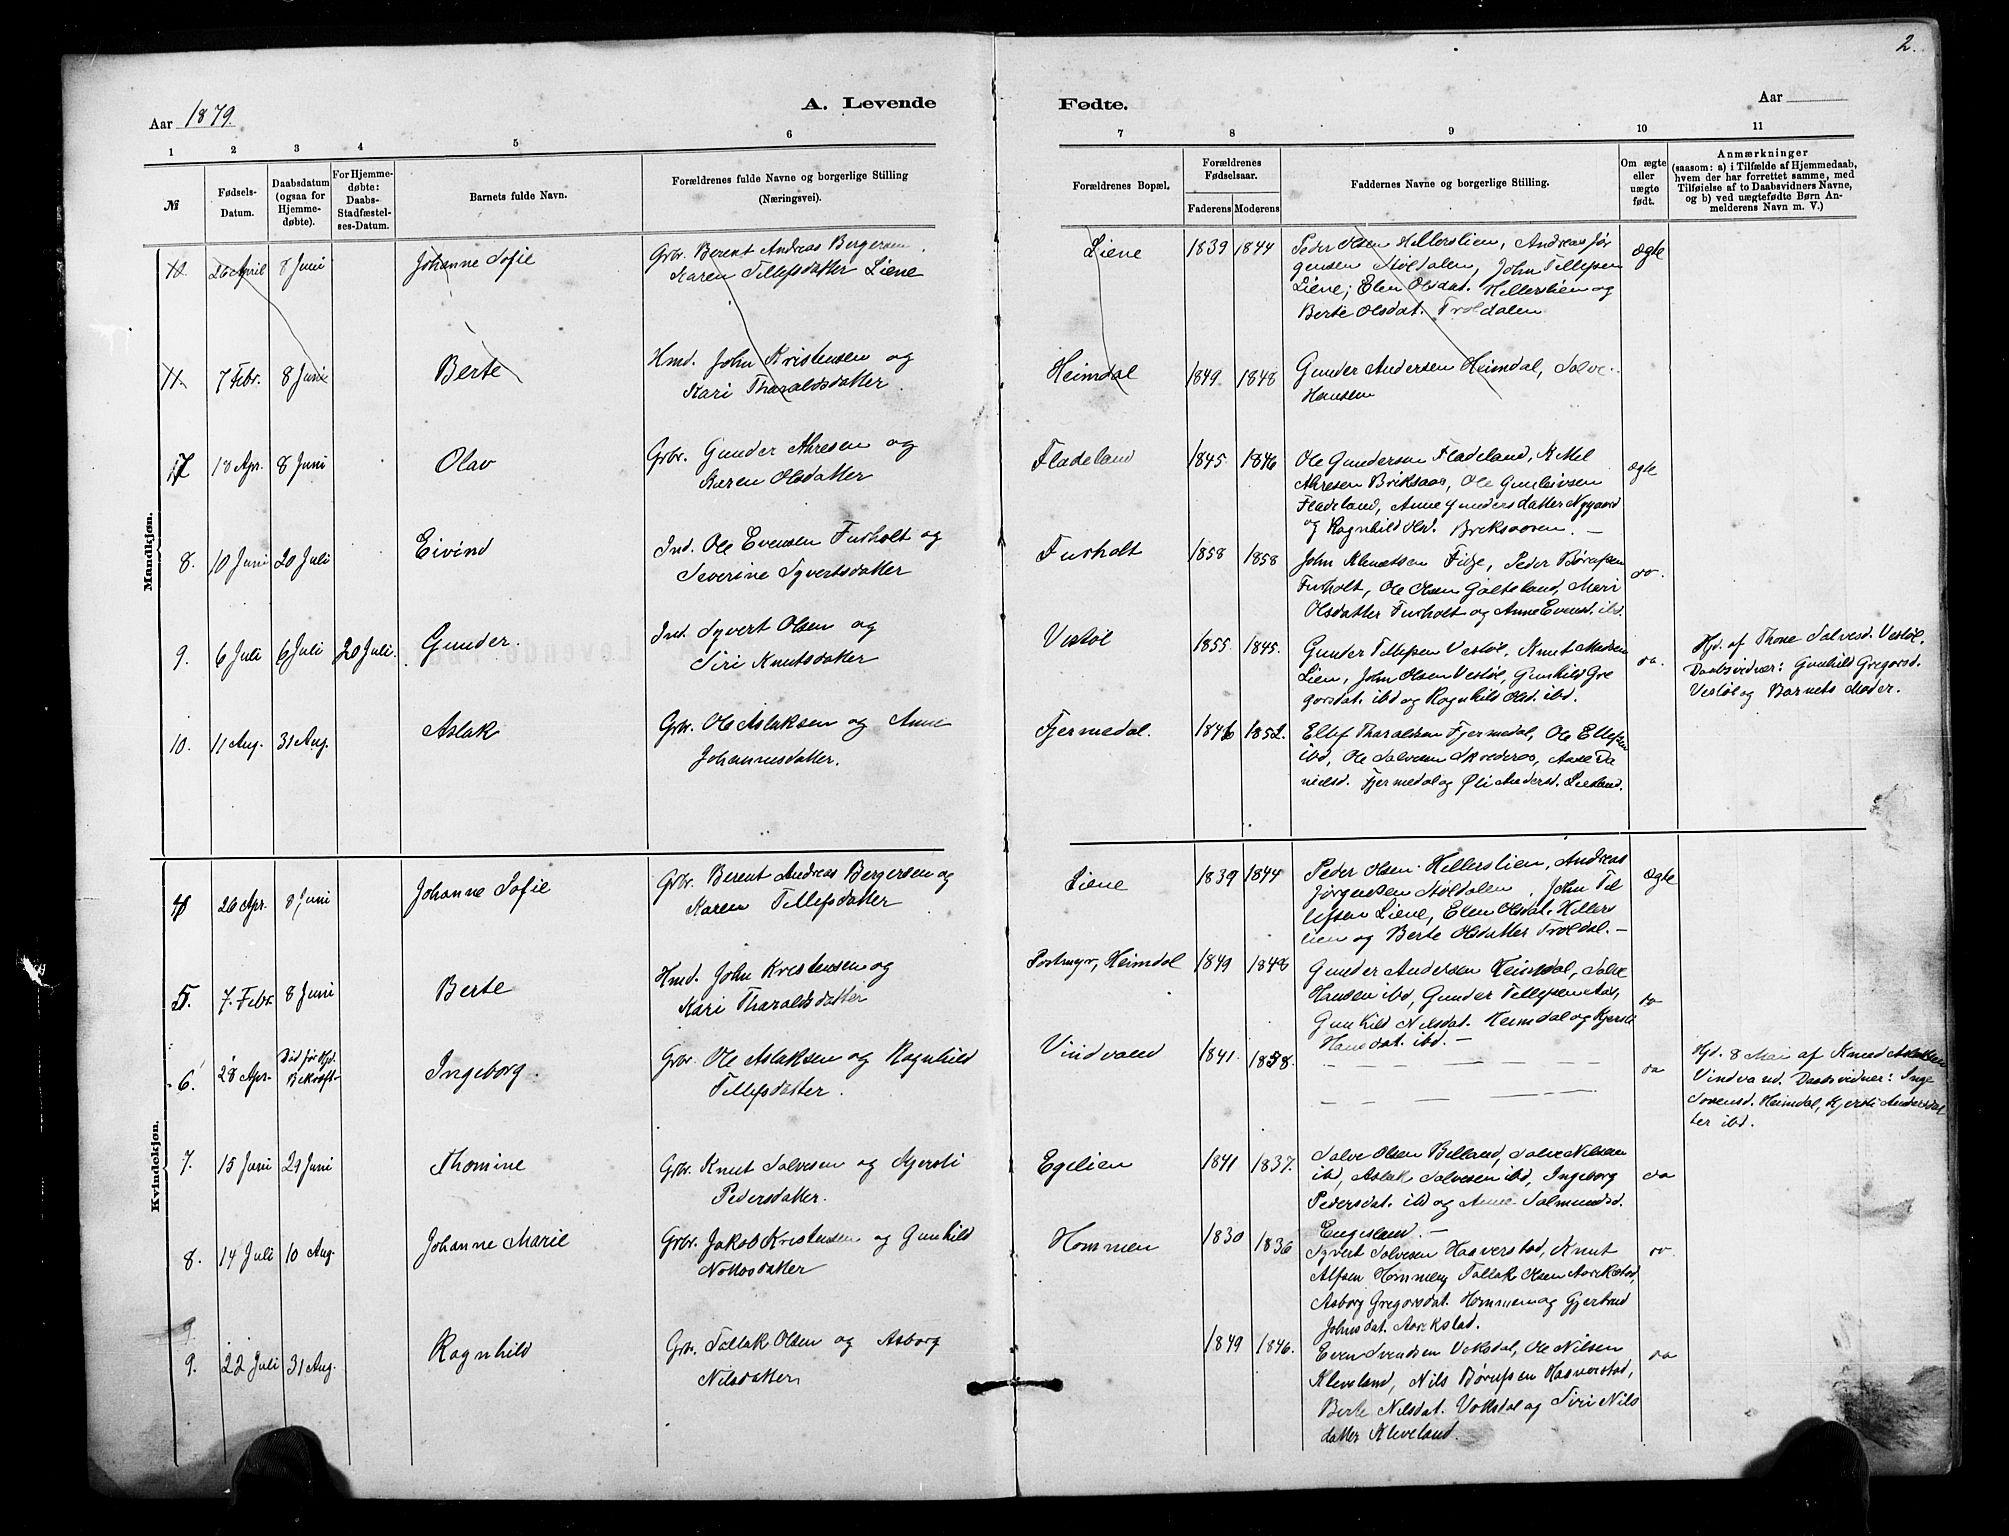 2.
Aar 1879.
A. Levende
Fødte.
Aar
1 2 3 4 5 6 7 8 9 10 11
№
Fødsels-
Datum.
Daabsdatum
(ogsaa for
Hjemme-
døbte).
For Hjemme-
døbte:
Daabs-
Stadfæstel-
ses-Datum.
Barnets fulde Navn.
Forældrenes fulde Navne og borgerlige Stilling
(Næringsvei).
Forældrenes Bopæl.
Forældrenes
Fødselsaar.
Faderens Moderens
Faddernes Navne og borgerlige Stilling.
Om ægte
eller
uægte
født.
Anmærkninger
(saasom: a) i Tilfælde af Hjemmedaab,
hvem der har forrettet samme, med
Tilføielse af to Daabsvidners Navne,
og b) ved uægtefødte Børn An-
melderens Navn m. V.)
Mandkjøn.
26 April 8 Juni Johanne Sofie
Grbr. Berent Andreas Bergersen
Karen Tellefsdatter Liene
Liene 1839 1844
Peder Olsen Hellerslien, Andreas Jør
gensen Støldalen, John Tellefsen
Liene, Elen Olsdat. Hellerslien og
Berte Olsdat. Troldalen
ægte
11. 7 Febr. 8 Juni Berte
Hmd. John Kristensen og
Kari Tharaldsdatter.
Heimdal 1849 1848
Gunder Andersen Heimdal, Salve
Hansen
7 18 Apr. 8 Juni Olav
Grbr. Gunder Akresen og
Karen Olsdatter
Fladeland 1845 1846
Ole Gundersen Fladeland, Kittel
Akresen Briksaas, Ole Gunleivsen
Fladeland, Anne Gundersdatter Nygaard
og Ragnhild Olsd. Breksaasen. —
ægte
8. 10 Juni 20 Juli Eivind
Ind. Ole Evensen Furholt og
Severine Syvertsdatter
Furholt 1858 1858
John Fidje, Peder Børufsen
Furholt, Ole Olsen Galteland, Mari
Olsdatter Furholt og Anne Evensd. ibd.
do.
9. 6 Juli 6 Juli 20 Juli. Gunder.
Ind. Syvert Olsen og
Siri Knutsdatter
Vestøl 1855. 1845.
Gunder Tellefsen Vestøl, Knut Madsen
Lien, John Olsen Vestøl, Gunhild Gre
gorsdat. ibd og Ragnhild Olsd. ibd.
do.
Hjd. af Thone Salvesd. Vestøl.
Daabsvidner: Gunhild Gregorsd.
Vestøl og Barnets Moder.
10. 11 Aug. 31 Aug. Aslak
Grbr. Ole Aslaksen og Anne
Johannesdatter.
Fjermedal. 1846 1852.
Ellef Tharaldsen Fjermedal, Ole Ellefsen
ibd, Ole Salvesen Skrederos, Aase Da
nielsd. Fjermedal og Øli Andersd. Lieland.
Kvindekjøn.
4 26 Apr. 8 Juni Johanne Sofie
Grbr. Berent Andreas Bergersen og
Karen Tellefsdatter
Liene 1839 1844
Peder Olsen Hellerslien, Andreas
Jørgensen Støldalen, John Tel
lefsen Liene, Elen Olsdat. Hellers
lien og Berte Olsdatter Troldal. —
ægte
5. 7. Febr. 8 Juni Berte
Hmd. John Kristensen og
Kari Tharaldsdatter
Postmyr, Heimdal 1849 1848
Gunder Andersen Heimdal, Salve
Hansen ibd, Gunder Tellefsen Aas,
Gunhild Nilsdat. Heimdal og Kjersti
Hansdat. ibd. —
do
6. 28 Apr. Død før Hjd.
Bekræft-
Ingeborg.
Grbr. Ole Aslaksen og Ragnhild
Tellefsdatter.
Vindvand 1841. 1858.
do
Hjd. 8 Mai af Knud Aslaksen
Vindvand. Daabsvidner: Inge
Sorensd. Heimdal, Kjersti Andersdat
ter ibd.
7. 15 Juni 29 Juni Thomine
Grbr. Knut Salvesen og Kjersti
Pedersdatter.
Egelien 1841 1837.
Salve Olsen Belland, Salve Nilsen
ibd, Aslak Salvesen ibd, Ingeborg
Pedersdat. ibd og Anne Salmundsd.
Eugesland. —
do
8. 14 Juli 10 Aug. Johanne Marie
Grbr. Jakob Kristensen og Gunhild
Nottosdatter
Hommen 1830 1836
Syvert Salvesen Haaverstad, Knut
Alfsen Hommen, Tallak Olsen Aarekstad,
Asborg Gregorsdat. Hommen og Gjertrud
Johnsdat. Aarekstad.
do.
9.
9. 22 Juli 31 Aug. Ragnhild
Grbr. Tallak Olsen og Asborg
Nilsdatter
1849 1846.
Even Svendsen Veksdal, Ole Nilsen
Kleveland, Nils Børufsen Haaverstad,
Berte Nilsdat. Veksdal og Siri Nils
datter Kleveland.
do